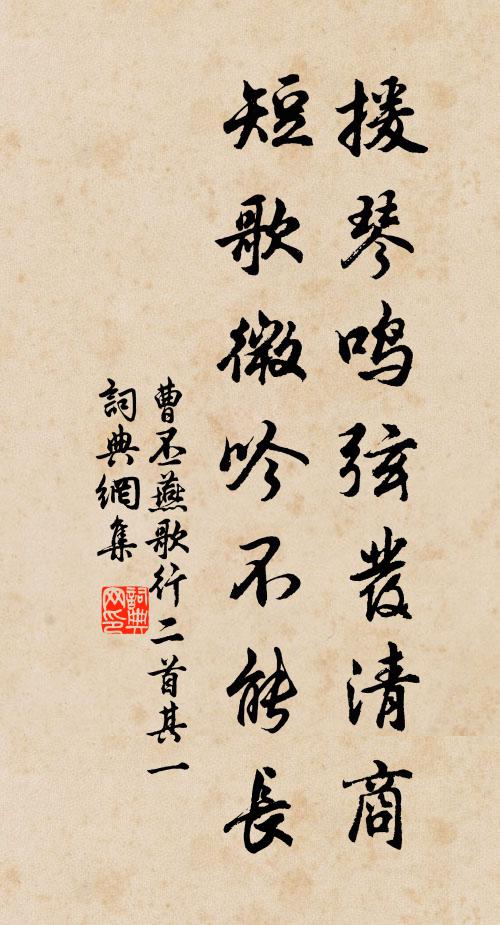 援琴鸣弦發清商
短歌微吟不能長
曹丕燕歌行二首其一
詞典網集
詞典
网印